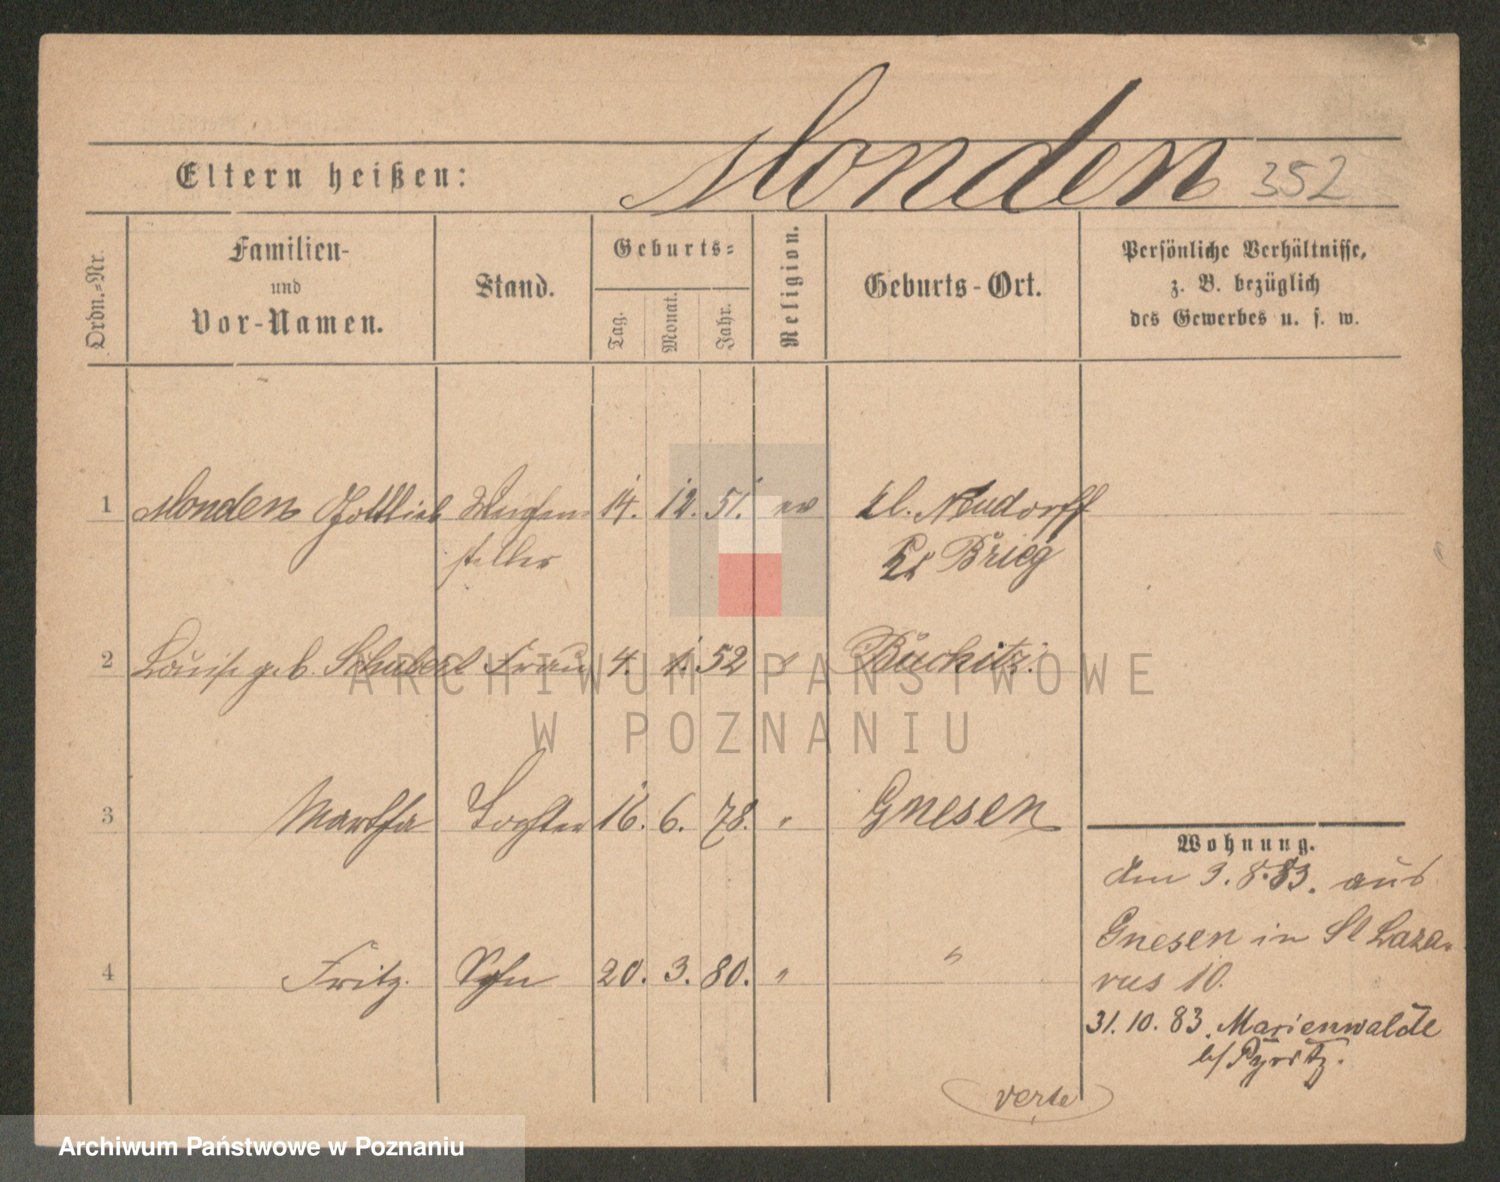 Eltern heißen: Monden 352
Ordn.-Nr. Familien- und Vor-Namen. Stand. Geburts- Tag. Monat. Jahr. Religion. Geburts-Ort. Persönliche Verhältnisse, z. B. bezüglich des Gewerbes u. s. w.
1 Monden Gottlieb Weichen 14. 12. 51. ev Kl. Neudorff
steller Krs Brieg
2 Louise geb. Schubert Frau 4. 1. 52 " Buchitz.
ARCHIWUM PAŃSTWOWE
W POZNANIU
3 Martha Tochter 16. 6. 78. " Gnesen
Wohnung.
den 3. 8. 83. aus
Gnesen in St Laza-
rus 10.
4 Fritz. Sohn 20. 3. 80. " "
31. 10. 83. Marienwalde
b/ Pyritz.
verte
Archiwum Państwowe w Poznaniu